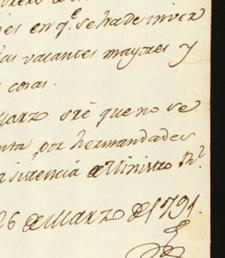 es en q.e se ha de inver
las vacantes mayores y
cosas.
Marzo s.re que no se
por hermandades
asistencia de Ministro R.l
26 de Marzo de 1791.